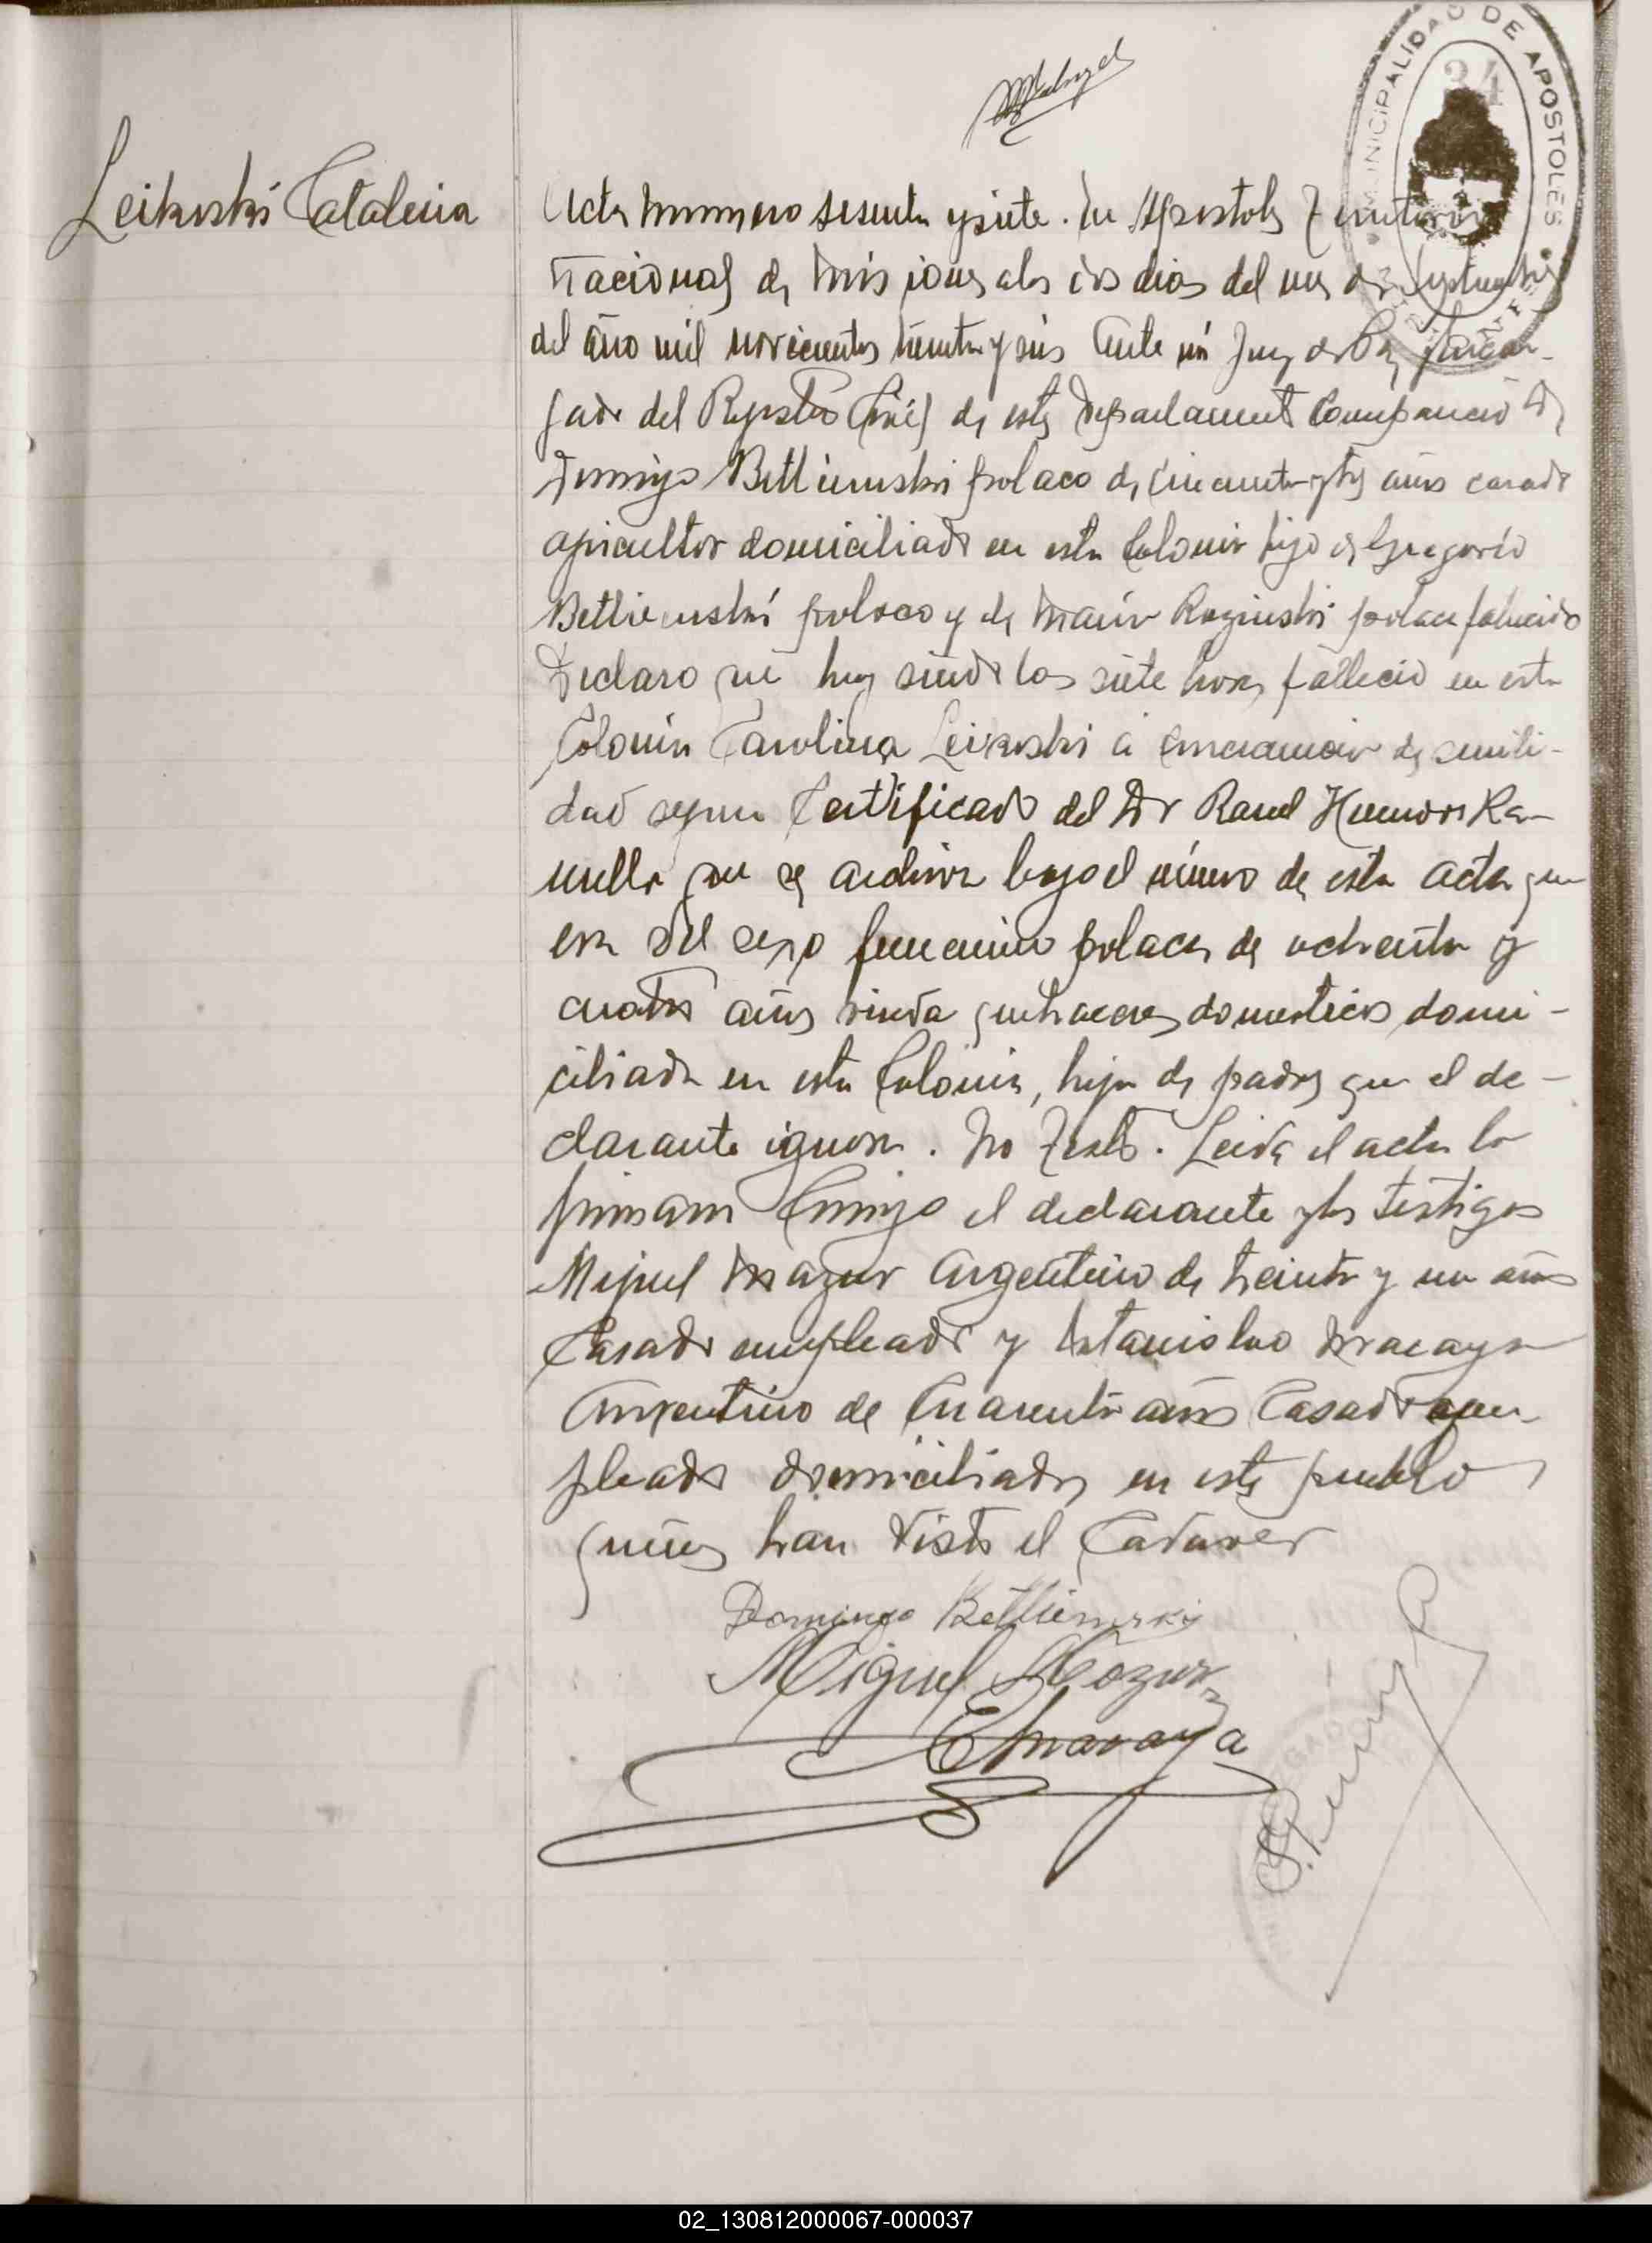 MUNICIPALIDAD DE APOSTOLES
34
Leikoski Catalina
Acta numero sesenta y siete. En Apostoles Territorio
Nacional de Misiones a los dos dias del mes de Septiembre
del año mil novecientos treinta y seis Ante mi Juez de Paz Encar-
gado del Registro Civil de este Departamento Comparecio Dn
Domingo Bettienuski polaco de cincuenta y tres años casado
agricultor domiciliado en esta Colonia hijo de Gregorio
Bettienuski polaco y de Maria polaca fallecido
Declaro que hoy siendo las siete horas fallecio en esta
Colonia Carolina Leikoski a consecuencia de senili-
dad segun Certificado del Dr Raul
que se archiva bajo el número de esta acta que
era del sexo femenino polaca de ochenta y
cuatro años viuda quehaceres domesticos domi-
ciliada en esta Colonia, hija de padres que el de-
clarante ignora. No Testó. Leida el acta la
firmaron Conmigo el declarante y los testigos
Miguel Mazur Argentino de treinta y un años
Casado empleado y Estanislao Maraya
Argentino de Cuarenta años Casado em-
pleado domiciliados en este pueblo
quienes han visto el Cadaver
Domingo Bettienuski
Miguel Mazur
E Maraya